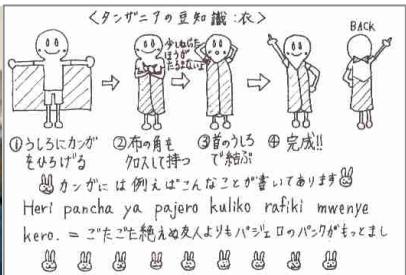 〈タンザニアの豆知識:衣〉
BACK
少しねじった
ほうが
たるまないよ
①うしろにカンガ
をひろげる
②布の角を
クロスして持つ
③首のうしろ
で結ぶ
④完成!!
カンガには例えばこんなことが書いてあります
Heri pancha ya pajero kuliko rafiki mwenye
kero. = ごたごた絶えぬ友人よりもパジェロのパンクがもっとまし